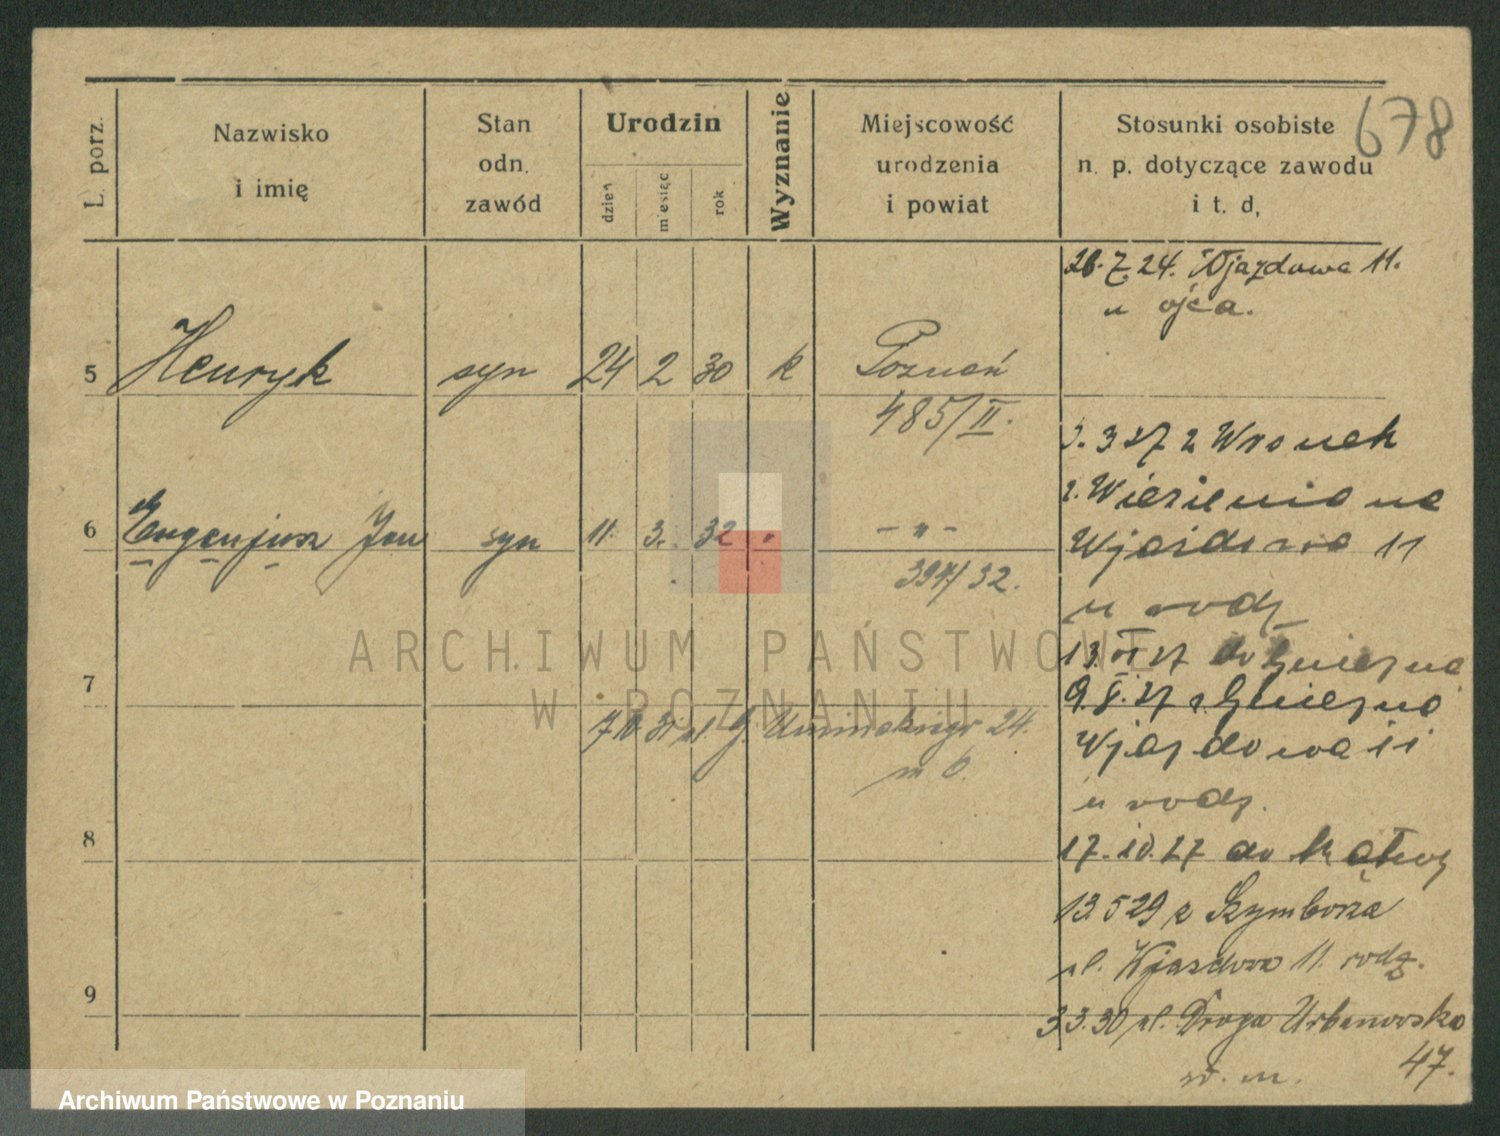 678
L. porz.
Nazwisko
i imię
Stan
odn.
zawód
Urodzin
dzień
miesiąc
rok
Wyznanie
Miejscowość
urodzenia
i powiat
Stosunki osobiste
n. p. dotyczące zawodu
i t. d,
26.7.24. Wjazdowa 11.
u ojca.
5 Henryk syn 24 2 30 k Poznań
485/II.
3.3 27 z Wronek
z. Wiezienia na
6 Eugenjusz Jan syn 11. 3. 32 " - " -
Wjazdowa 11
394/32.
u rodz
13 VI 27 do Gniezna
7
9.8.27 z Gniezna
7 10 31 ul. G. Umińskiego 24.
m 6.
Wjazdowa 11
u rodz.
8
17.10.27 do
13.5 29 z Szymborza
ul. Wjazdowa 11. rodz.
9
3 3.30 ul. Droga Urbanowska
47.
ARCHIWUM PAŃSTWOWE
W POZNANIU
Archiwum Państwowe w Poznaniu